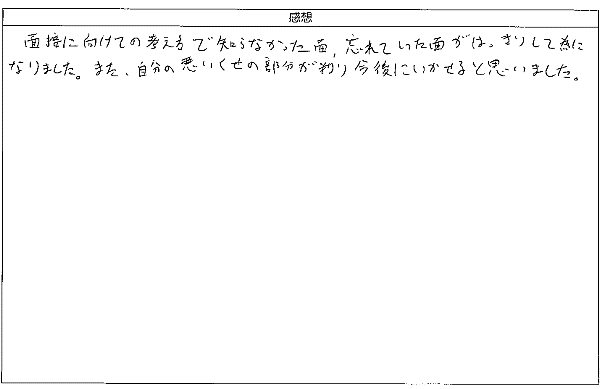 感想
面接に向けての考え方で知らなかった面、忘れていた面がはっきりして為に
なりました。また、自分の悪いくせの部分が判り今後にいかせると思いました。